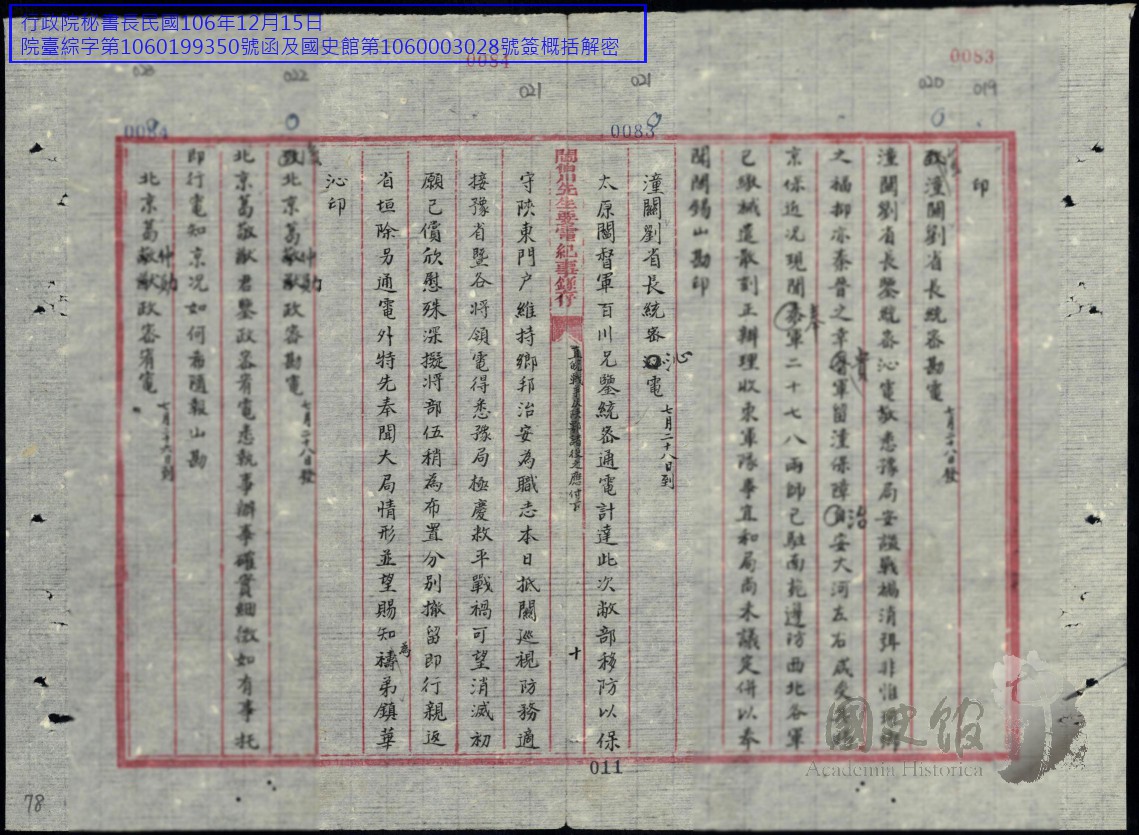 行政院秘書長民國106年12月15日
院臺綜字第1060199350號函及國史館第1060003028號簽概括解密
0083
0084
019
020
021
021
022
0083
印
潼關劉省長統密勘電 七月二十八日發
潼關劉省長鑒統密沁電敬悉豫局安謐戰禍消弭非惟
之福抑亦秦晉之幸 軍留潼保障 治安大河左右咸受
京保近況現聞奉軍二十七八兩師已駐南苑遵防西北各軍
已繳械遣散刻正辦理收束軍隊事宜和局尚未議定併以奉
聞閻錫山勘印
潼關劉省長統密沁電 七月二十八日到
太原閻督軍百川兄鑒統密通電計達此次敝部移防以保
閻伯川先生要電紀事錄存
直皖戰爭及 善後之應付下
十
011
守陝東門戶維持鄉邦治安為職志本日抵關巡視防務適
接豫省暨各將領電得悉豫局極慶救平戰禍可望消滅初
願已償欣慰殊深擬將部伍稍為布置分別撤留即行親返
省垣除另通電外特先奉聞大局情形並望賜知為禱弟鎮華
沁印
北京葛敬猷政密勘電 七月二十八日發
北京葛敬猷君鑒政密宥電悉執事辦事確實細緻如有事託
即行電知京況如何希隨報山勘
北京葛敬猷政密宥電 七月二十六日到
78
國史館
Academia Historica